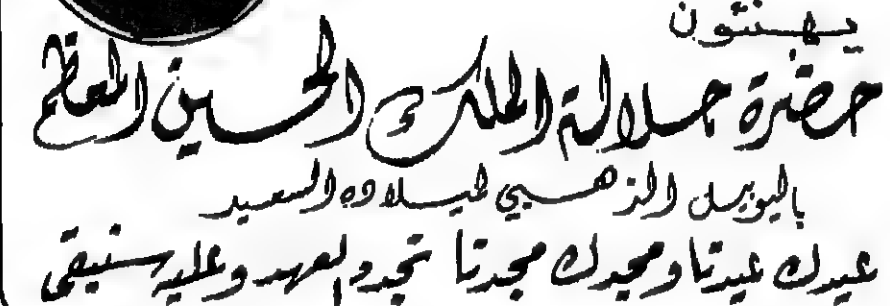 يهنئون
حضرة جلالة الملك الحسين المعظم
باليوبيل الذهبي لميلاده السعيد
عيدك عيدنا ومجدك مجدنا نجدد العهد وعليه سنبقى